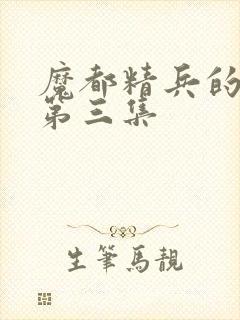 魔都精兵的
第三集
生筆馬靚